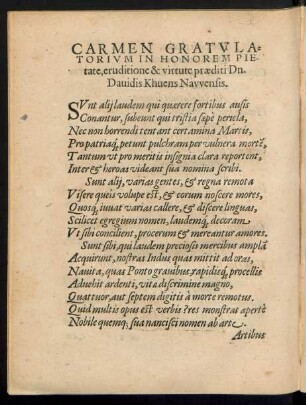 CARMEN GRATVLA-
TORIVM IN HONOREM PIE
tate, eruditione & virtute præditi Dn.
Dauidis Khuens Nayvensis.
SVnt alij laudem qui quærere fortibus ausis
Conantur, subeunt qui tristia sæpè pericla,
Nec non horrendi tentant certamina Martis,
Pro patriaq; petunt pulchram per vulnera mortẽ,
Tantum vt pro meritis insignia clara reportent,
Inter & heroas videant sua nomina scribi.
Sunt alij, varias gentes, & regna remota
Visere queîs volupe est, & eorum noscere mores,
Quosq; iuuat varias callere, & discere linguas,
Scilicet egregium nomen, laudemq; decoram
Vt sibi concilient, procerum & mereantur amores.
Sunt sibi, qui laudem preciosis mercibus amplã
Acquirunt, nostras Indus quas mittit ad oras,
Nauita, quas Ponto grauibus, rapidisq; procellis
Aduehit ardenti, vitæ discrimine magno,
Quattuor, aut septem digitis à morte remotus.
Quid multis opus est verbis? res monstrat apertè
Nobile quemq; sua nancisci nomen ab arte.
Artibus